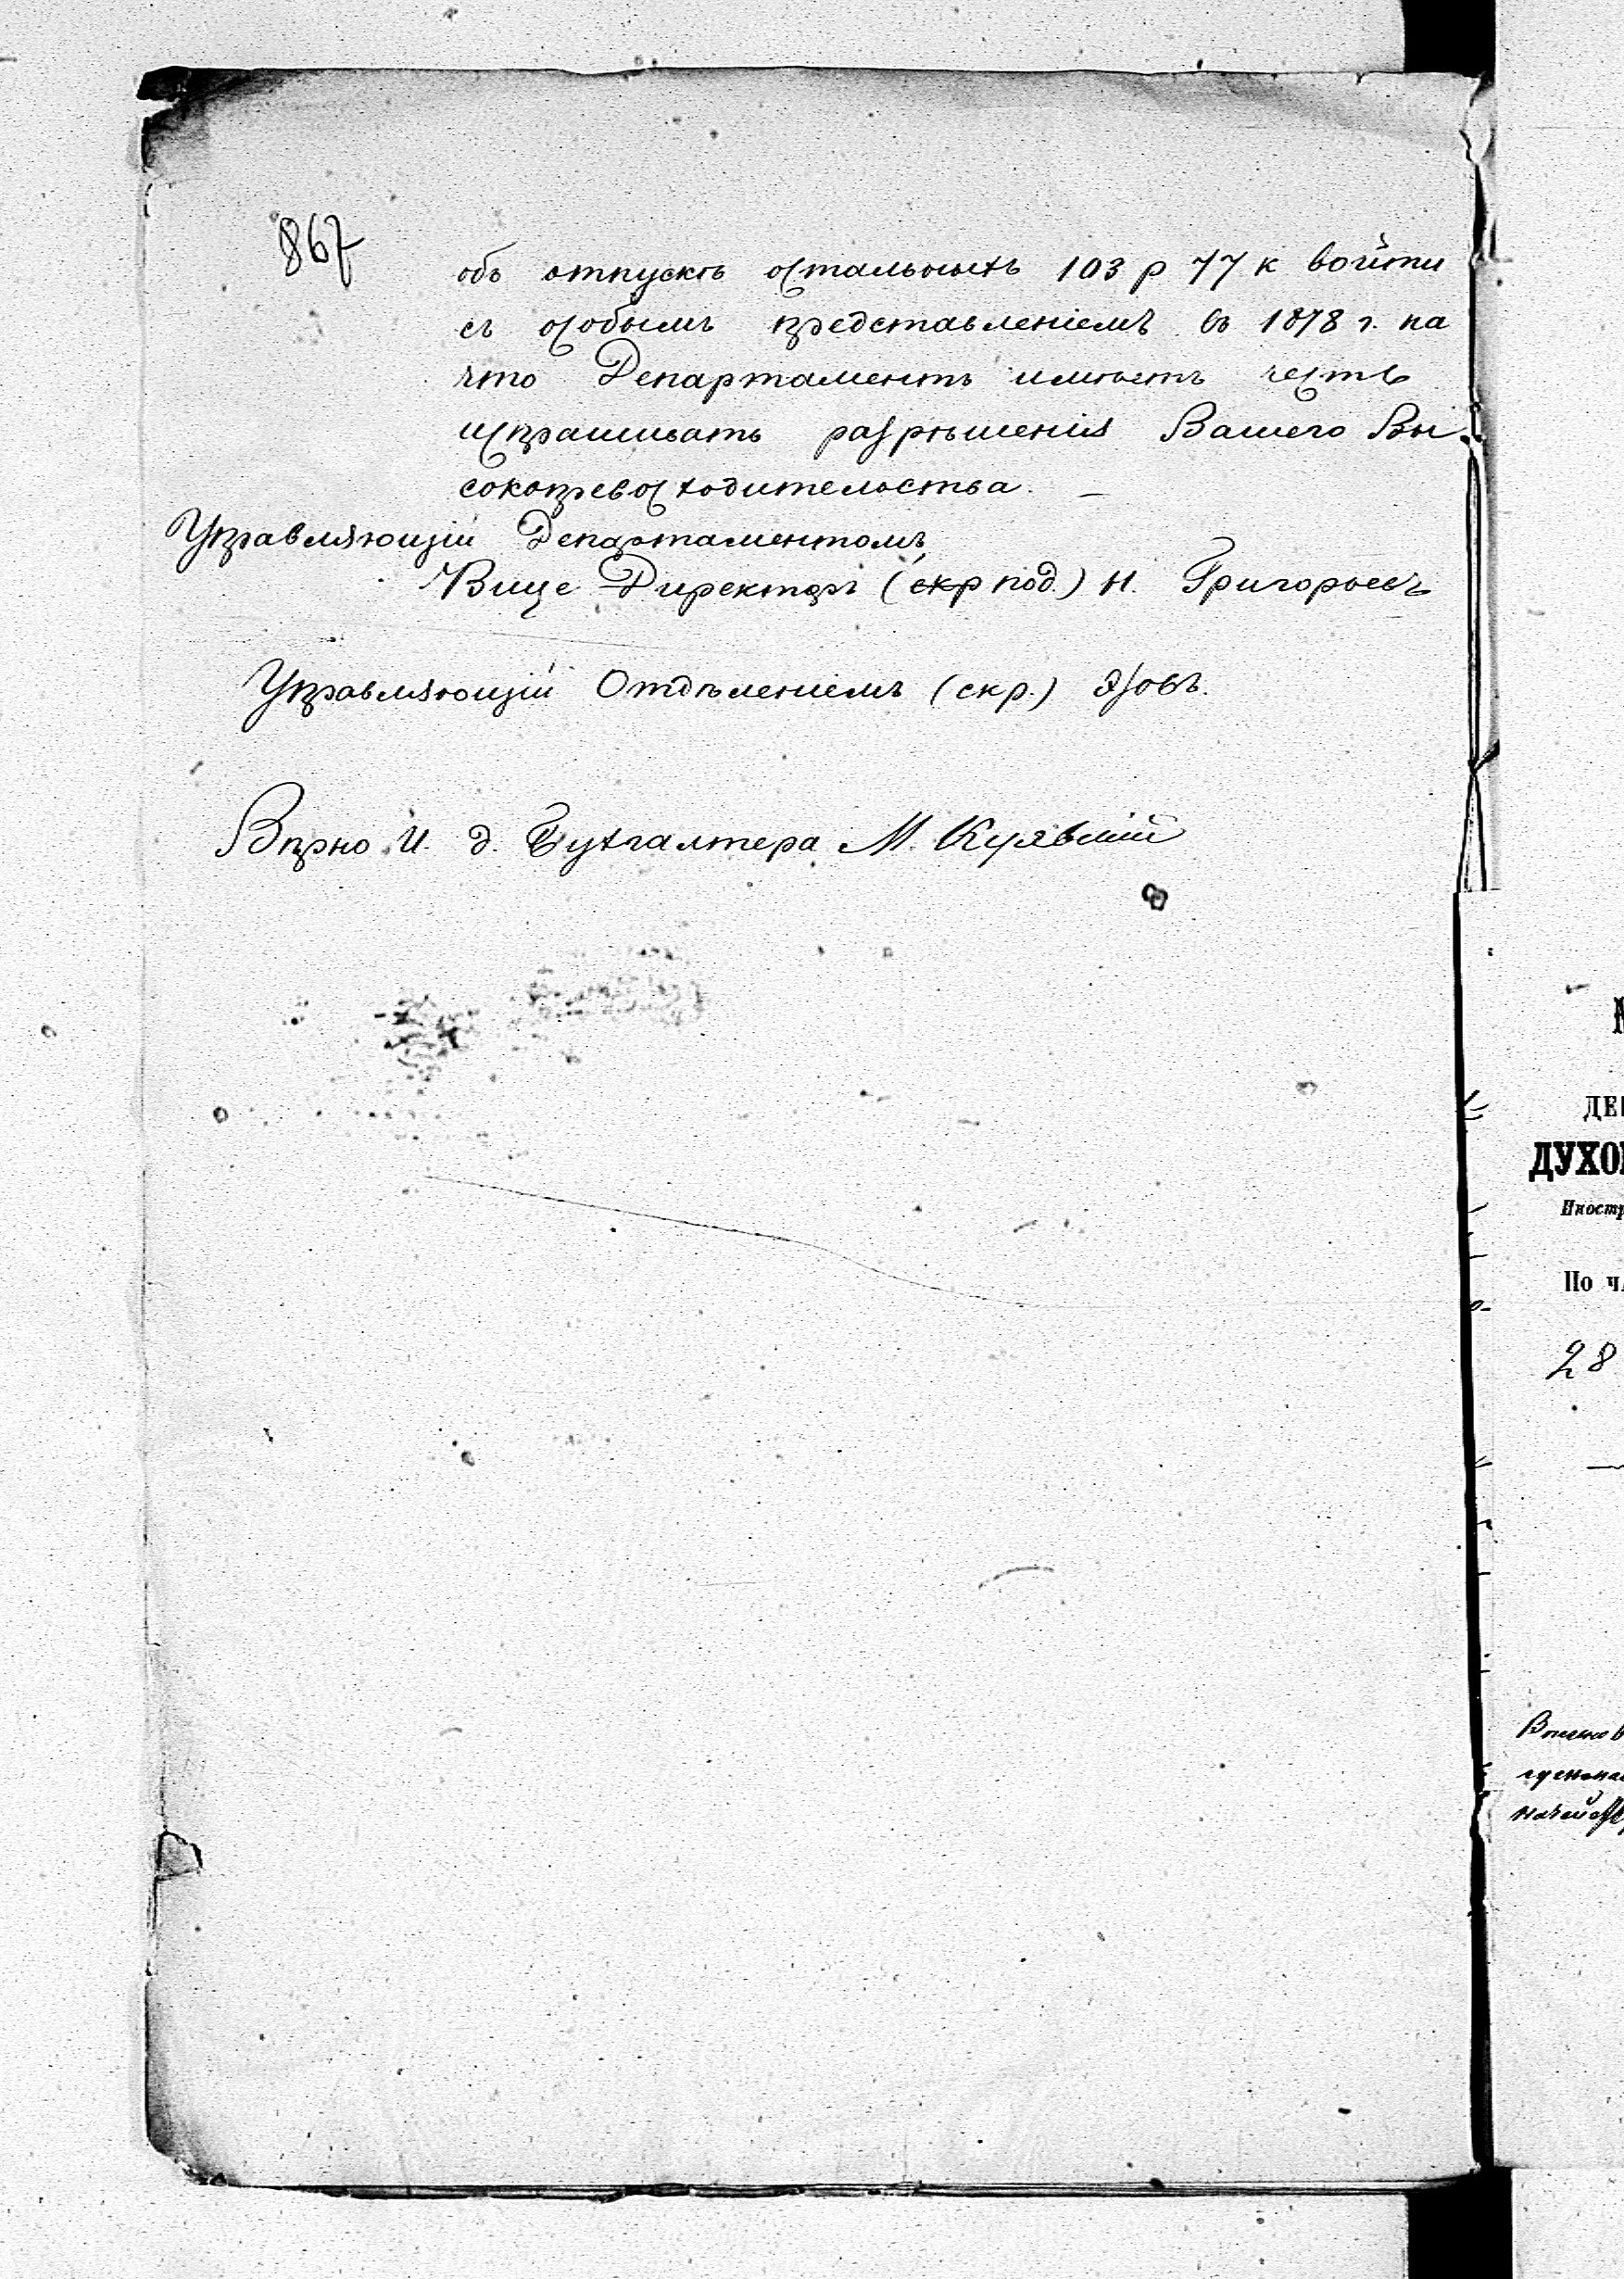 867
объ отпускѣ остальныхъ 103 р 77 к войти
съ особымъ представленіемъ въ 1878 г. на
что Департаментъ имѣетъ честь
испрашивать разрѣшенія Вашего Вы
сокопревосходительства. —
Управляющій Департаментомъ,
Вице Директоръ (скр под.) Н. Григорьевъ
Управляющій Отдѣленіемъ (скр.) Язовъ.
Вѣрно И. д. Бухгалтера М.
ДЕ
ДУХО
Иностр
По ч
28